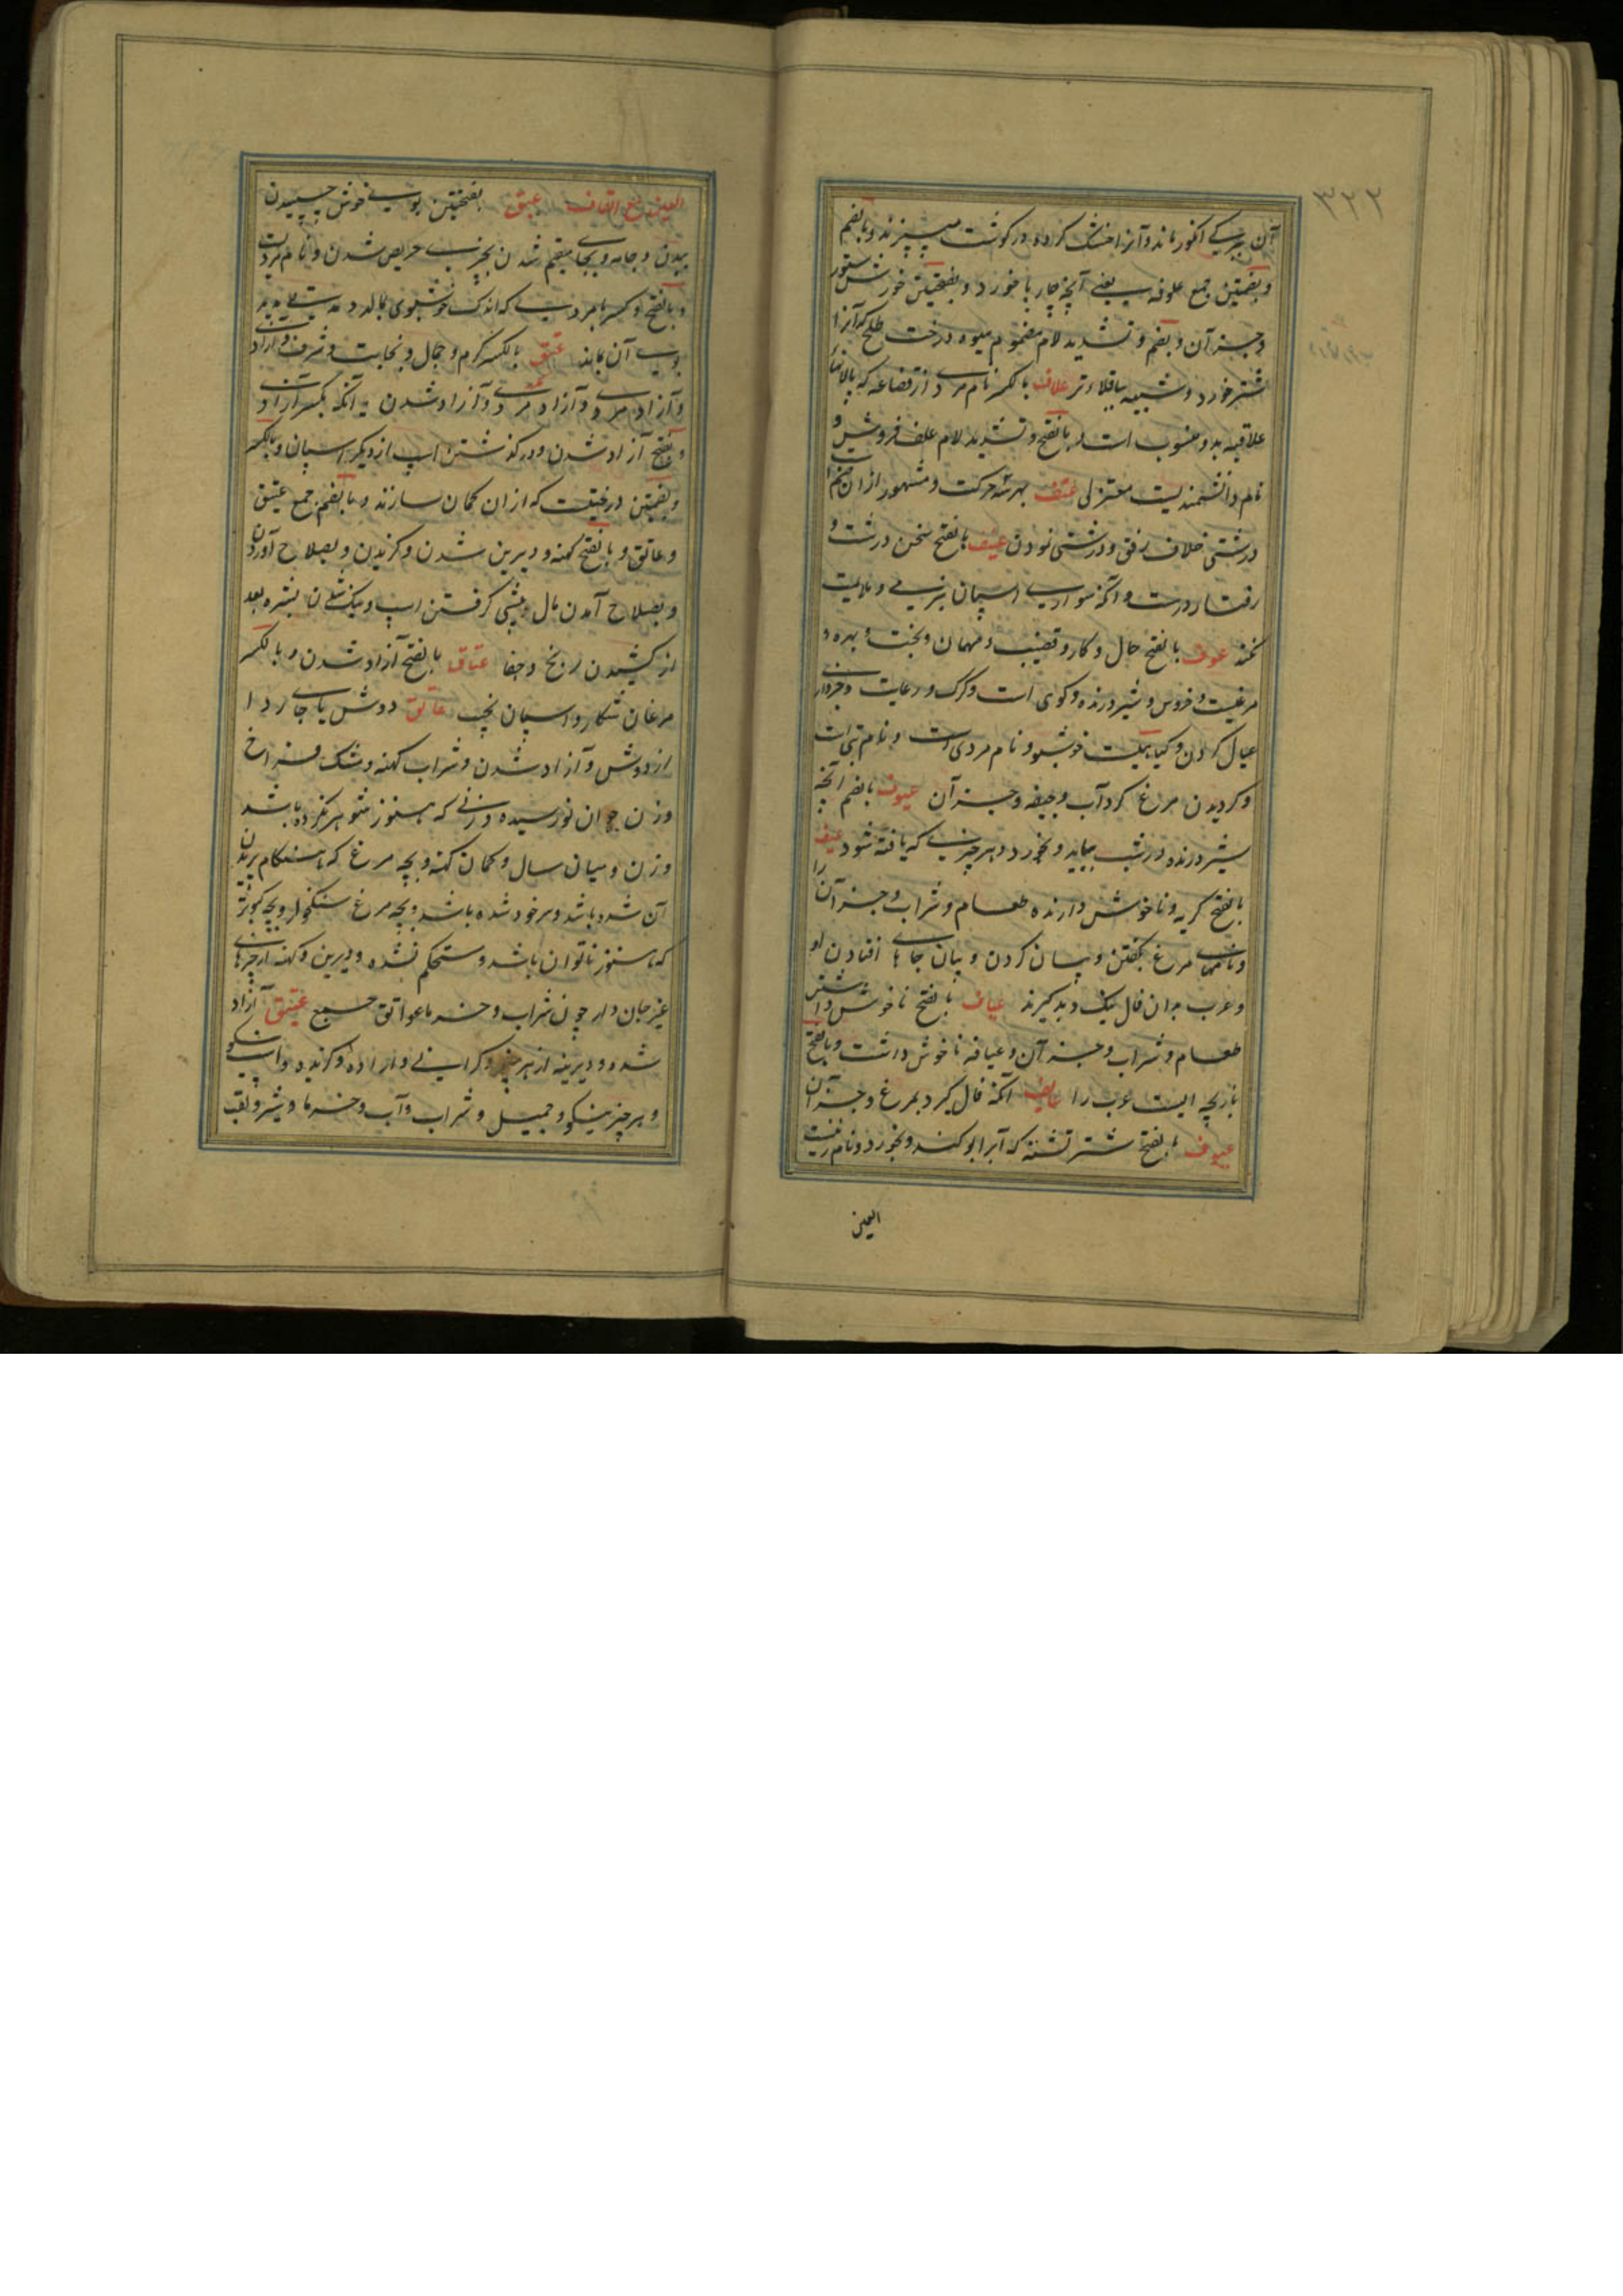 ٣٢٢
آن ببرگ انگور ماند و آنرا خشک کرده در گوشت میپزند و بالضم
و بضمتین جمع علوفه یعنی آنچه چارپا خورد و بفتحتین خورش ستور
و جز آن و بضم و تشدید لام مضموم میوه درخت طلح که آنرا
شتر خورد و شبیه بباقلاء تر علاف بالکسر نام مردی از قضاعه که پالانهاء
علافیه بدو منسوب است و بالفتح و تشدید لام علف فروش و
نام دانشمندیست معتزلی عنف بهر سه حرکت و مشهور ازان ضم
درشتی خلاف رفق و درشتی نمودن عنیف بالفتح سخن درشت و
رفتار درست و آنکه سواری اسپان بنرمی و ملایمت
نکند عوف بالفتح حال و کار و قضیب و مهمان و بخت و بهره و
مرغیست و خروس و شیر درنده و کوی است و گرگ و رعایت و خبرداری
عیال کردن و گیاهیست خوشبو و نام مردی است و نام بتی است
و گردیدن مرغ گرد آب و جیفه و جز آن عیوف بالضم آنچه
شیر درنده در شب بیابد و بخورد و هر چیزی که یافته شود عیف
بالفتح کریه و ناخوش دارنده طعام و شراب و جز آن را
و نامهاء مرغ گفتن و بیان کردن و بیان جاهای افتادن او
و عرب بدان فال نیک و بد گیرند عیاف بالفتح ناخوش داشتن
طعام و شراب و جز آن و عیافه ناخوش داشت و بالفتح
بازیچه ایست عرب را عایف آنکه فال گیرد بمرغ و جز آن
عیوف بالفتح شتر تشنه که آب را بو کند و نخورد و نام زنیست
العین
العین مع القاف عبق بفتحتین بوی خوش چسپیدن
ببدن و جامه و بجای مقیم شدن بچیزی حریص شدن و نام مردیست
و بالفتح و کسر با مردیست که اندک خوشبوی بمالد و مدت
بوی آن بماند عتق بالکسر کرم و جمال و نجابت و شرف و آزادی
و آزاد مردی و آزاد شدن
و بفتح آزاد شدن و درگذشتن اسپ از دیگر اسپان و بالکسر
و بضمتین درختیست که ازان کمان سازند و بالضم جمع عتیق
و عاتق و بالفتح کهنه و دیرین شدن و گزیدن و بصلاح آوردن
و بصلاح آمدن مال پیشی گرفتن اسپ و نیک شدن بشره بعد
از کشیدن رنج و جفا عتاق بالفتح آزاد شدن و بالکسر
مرغان شکار و اسپان نجیب عاتق دوش یا جای ردا
از دوش و آزاد شدن و شراب کهنه و مشک فراخ
و زن جوان نورسیده و زنی که هنوز شوهر نکرده باشد
و زن و میان سال و کمان کهنه و بچه مرغ که هنگام پریدن
آن شده باشد و سرخود شده باشد و بچه مرغ سنگخوار و بچه کبوتر
که هنوز ناتوان باشد و مستحکم نشده و دیرین و کهنه از چیزهای
غیر جان دار چون شراب و خرما عواتق جمع عتیق آزاد
شده و دیرینه از هر چیز و گرانی و آزاده و گزیده و اسپ نیکو
و هر چیز نیکو و جمیل و شراب و آب و خرما و شیر و لقب